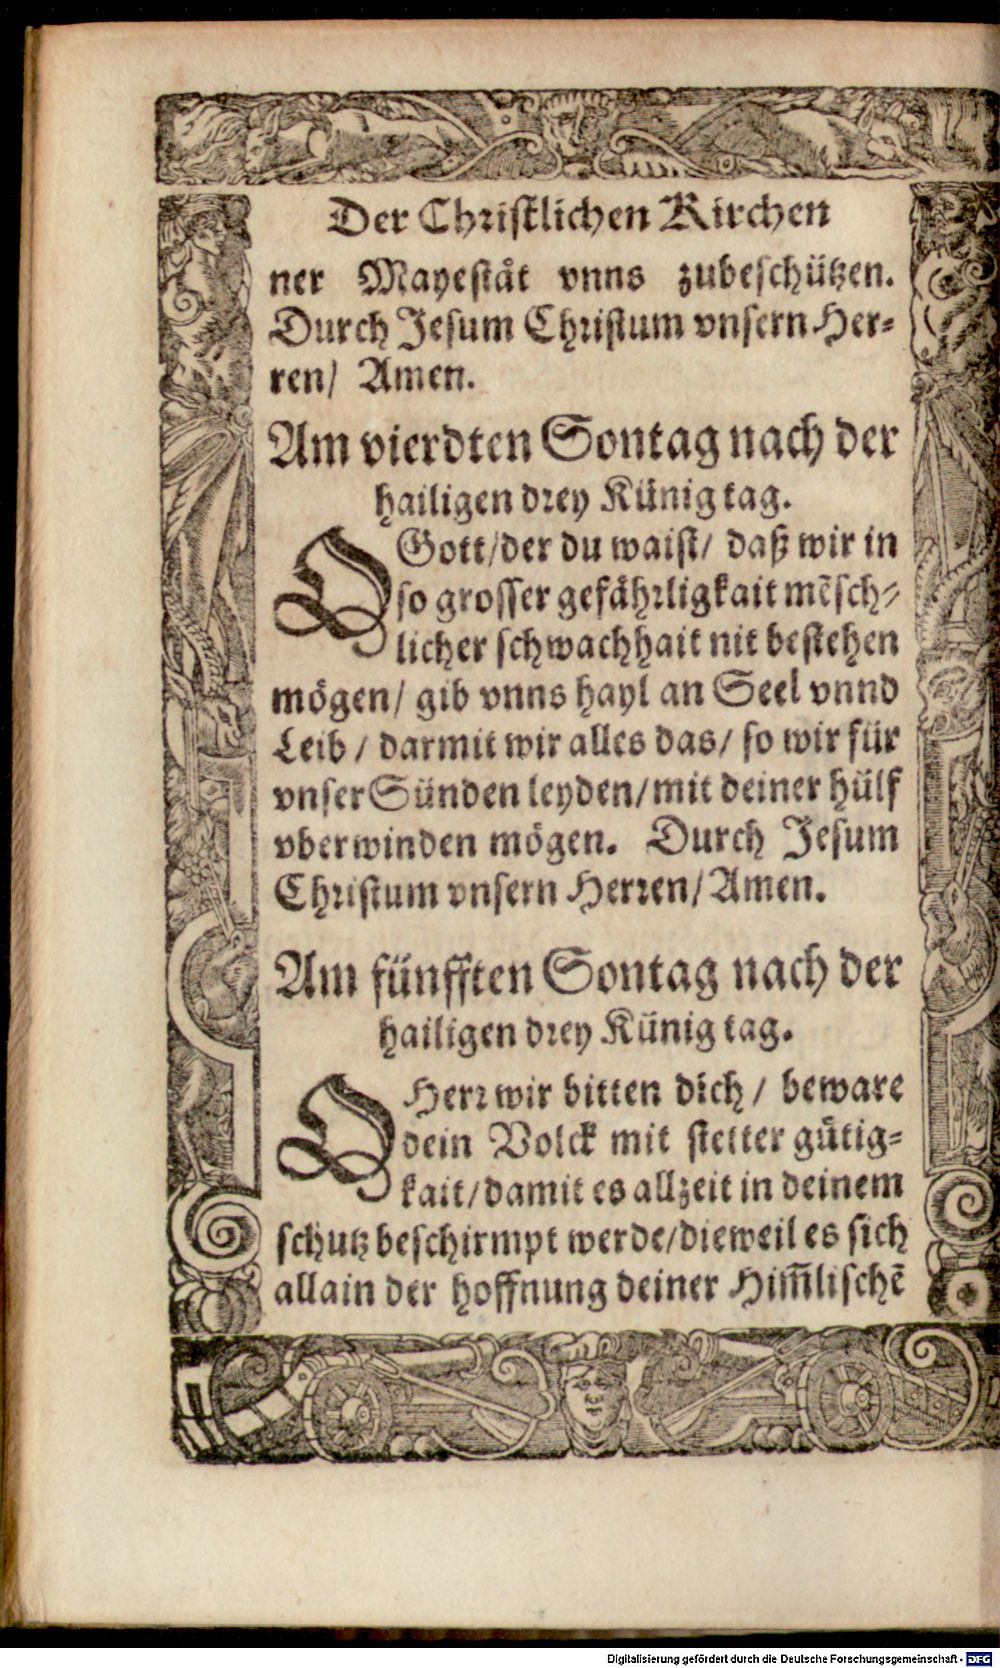 Der Christlichen Kirchen
ner Mayeståt vnns zubeschützen.
Durch Jesum Christum vnsern Her-
ren/ Amen.
Am vierdten Sontag nach der
hailigen drey Künig tag.
O Gott/ der du waist/ daß wir in
so grosser gefåhrligkait mẽsch-
licher schwachhait nit bestehen
mögen/ gib vnns hayl an Seel vnnd
Leib / darmit wir alles das/ so wir für
vnser Sünden leyden/ mit deiner hülf
vberwinden mögen. Durch Jesum
Christum vnsern Herren/ Amen.
Am fünfften Sontag nach der
hailigen drey Künig tag.
O Herr wir bitten dich / beware
dein Volck mit stetter gütig-
kait/ damit es allzeit in deinem
schutz beschirmpt werde/ dieweil es sich
allain der hoffnung deiner Him̃lischẽ
Digitalisierung gefördert durch die Deutsche Forschungsgemeinschaft - DFG